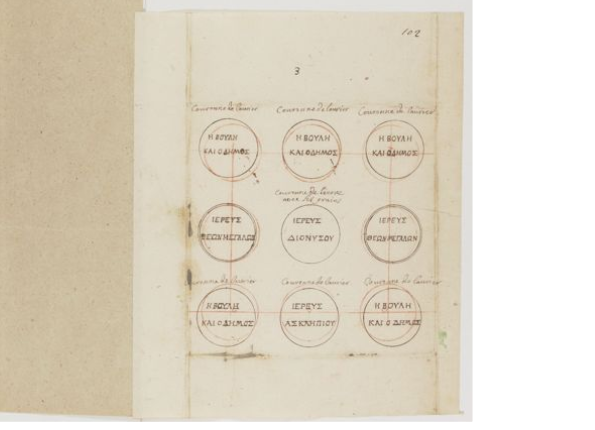 102
3
Couronne de laurier Couronne de laurier Couronne de laurier
Η ΒΟΥΛΗ Η ΒΟΥΛΗ Η ΒΟΥΛΗ
ΚΑΙ Ο ΔΗΜΟΣ ΚΑΙ Ο ΔΗΜΟΣ ΚΑΙ Ο ΔΗΜΟΣ
Couronne de lierre
avec des
ΙΕΡΕΥΣ ΙΕΡΕΥΣ ΙΕΡΕΥΣ
ΘΕΩΝ ΜΕΓΑΛΩΝ ΔΙΟΝΥΣΟΥ ΘΕΩΝ ΜΕΓΑΛΩΝ
Couronne de laurier Couronne de laurier Couronne de laurier
Η ΒΟΥΛΗ ΙΕΡΕΥΣ Η ΒΟΥΛΗ
ΚΑΙ Ο ΔΗΜΟΣ ΑΣΚΛΗΠΙΟΥ ΚΑΙ Ο ΔΗΜΟΣ